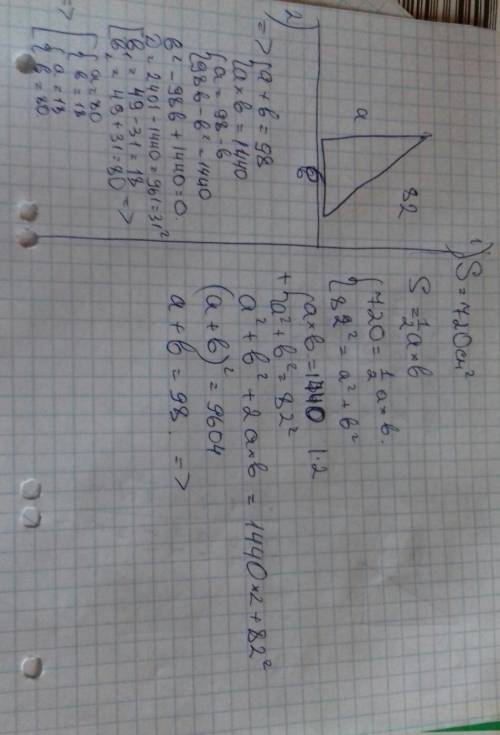 1) S = 720 см²
S = 1/2 a × b
{ 720 = 1/2 a × b.
{ 82² = a² + b²
{ a × b = 1440 | · 2
+ { a² + b² = 82²
a² + b² + 2a × b = 1440 × 2 + 82²
(a + b)² = 9604
a + b = 98. =>
2)
a
82
b
=> { a + b = 98
{ a × b = 1440
{ a = 98 - b
{ 98b - b² = 1440
b² - 98b + 1440 = 0.
D = 2401 - 1440 = 961 = 31²
[ b₁ = 49 - 31 = 18
[ b₂ = 49 + 31 = 80 =>
=> [ { a = 80
{ b = 18
[ { a = 18
{ b = 80